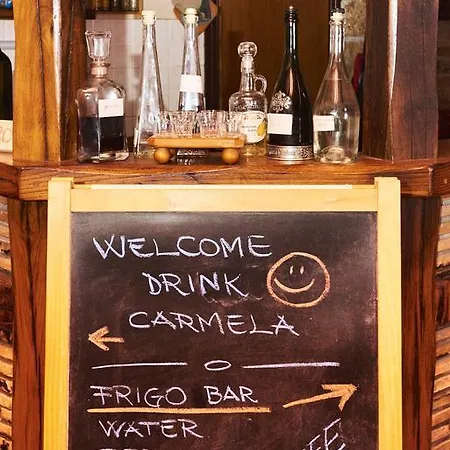 WELCOME
DRINK
CARMELA
FRIGO BAR
WATER